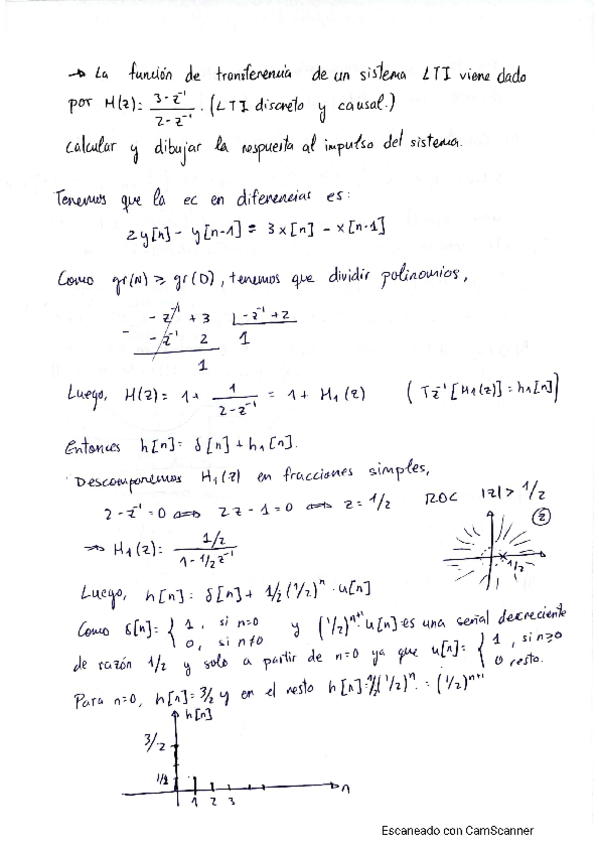 → La función de transferencia de un sistema LTI viene dado
por H(z): 3-z⁻¹ / 2-z⁻¹ . (LTI discreto y causal.)
Calcular y dibujar la respuesta al impulso del sistema.
Tenemos que la ec en diferencias es:
2y[n] - y[n-1] = 3x[n] - x[n-1]
Como gr(N) ≥ gr(D), tenemos que dividir polinomios,
-z⁻¹ + 3 |-z⁻¹ + 2
- -z⁻¹ 2 1
1
Luego, H(z) = 1 + 1 / 2-z⁻¹ = 1 + H₁(z) (Tz⁻¹[H₁(z)] = h₁[n])
Entonces h[n] = δ[n] + h₁[n].
Descomponemos H₁(z) en fracciones simples,
2-z⁻¹ = 0 ⟺ 2z-1 = 0 ⟺ z = 1/2 ROC |z| > 1/2
z
1/2
⇒ H₁(z): 1/2 / 1-1/2z⁻¹
Luego, h[n] = δ[n] + 1/2(1/2)ⁿ · u[n]
Como δ[n] = { 1, si n=0 y (1/2)ⁿ⁺¹ u[n] es una señal decreciente
0, si n≠0
de razón 1/2 y solo a partir de n=0 ya que u[n] = { 1, si n≥0
0 resto.
Para n=0, h[n] = 3/2 y en el resto h[n] = 1/2(1/2)ⁿ = (1/2)ⁿ⁺¹
h[n]
3/2
1 2 3 n
Escaneado con CamScanner